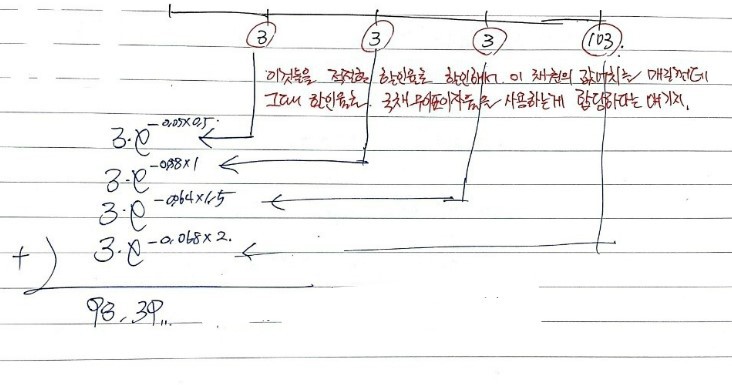 3 3 3 103.
이것들을 적절한 할인율로 할인해서 이 채권의 값어치를 매길텐데
그때 할인율로 국채 무이표이자율을 사용하는게 합당하다는 얘기지.
3·e^-0.05×0.5.
3·e^-0.058×1
3·e^-0.064×1.5
3·e^-0.068×2.
+)
98.39...